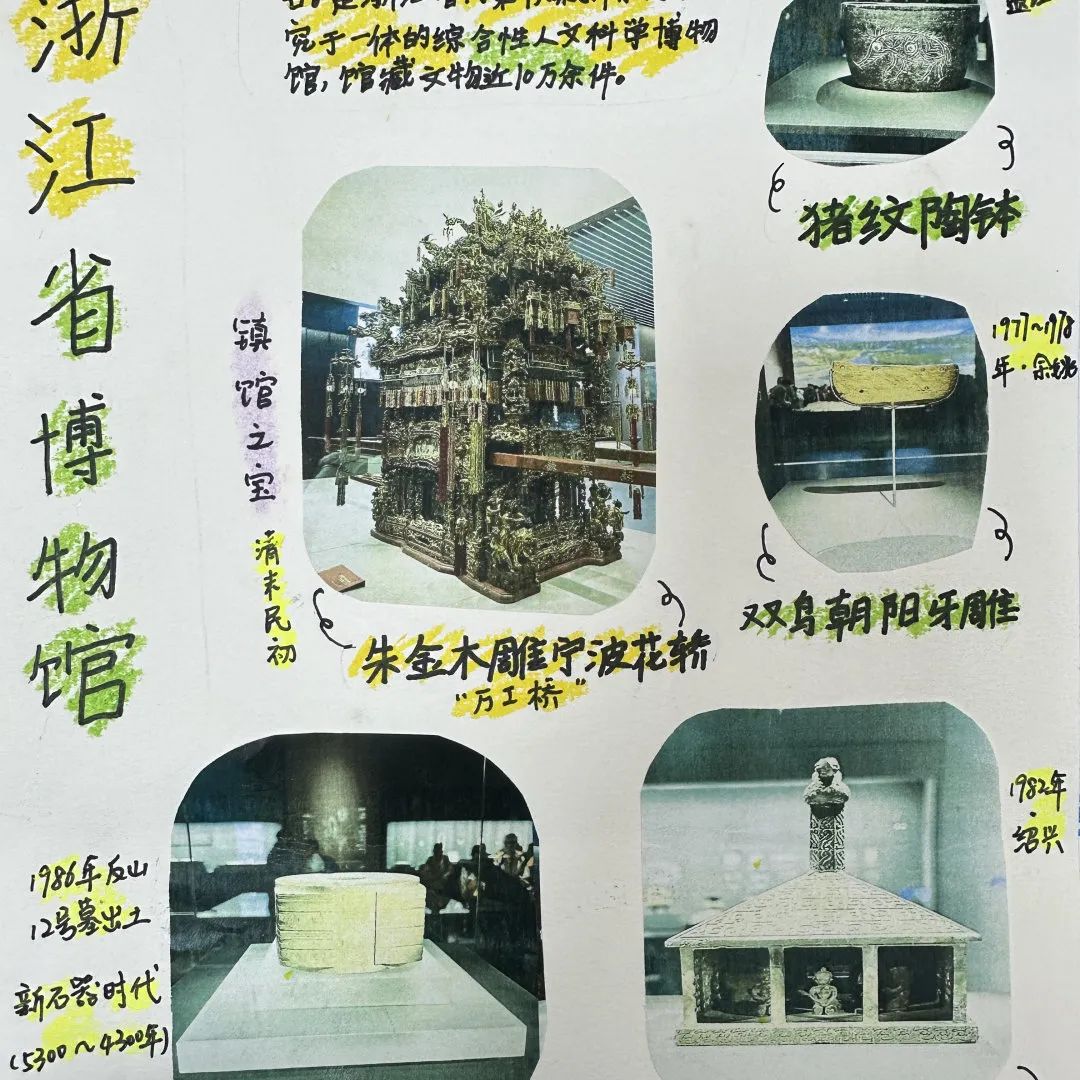 浙江省博物馆
究于一体的综合性人文科学博物
馆，馆藏文物近10万余件。
猪纹陶钵
镇馆之宝
清末民初
朱金木雕宁波花轿
“万工桥”
1977~1978
年·余姚
双鸟朝阳牙雕
1986年反山
12号墓出土
新石器时代
(5300～4300年)
1982年
绍兴